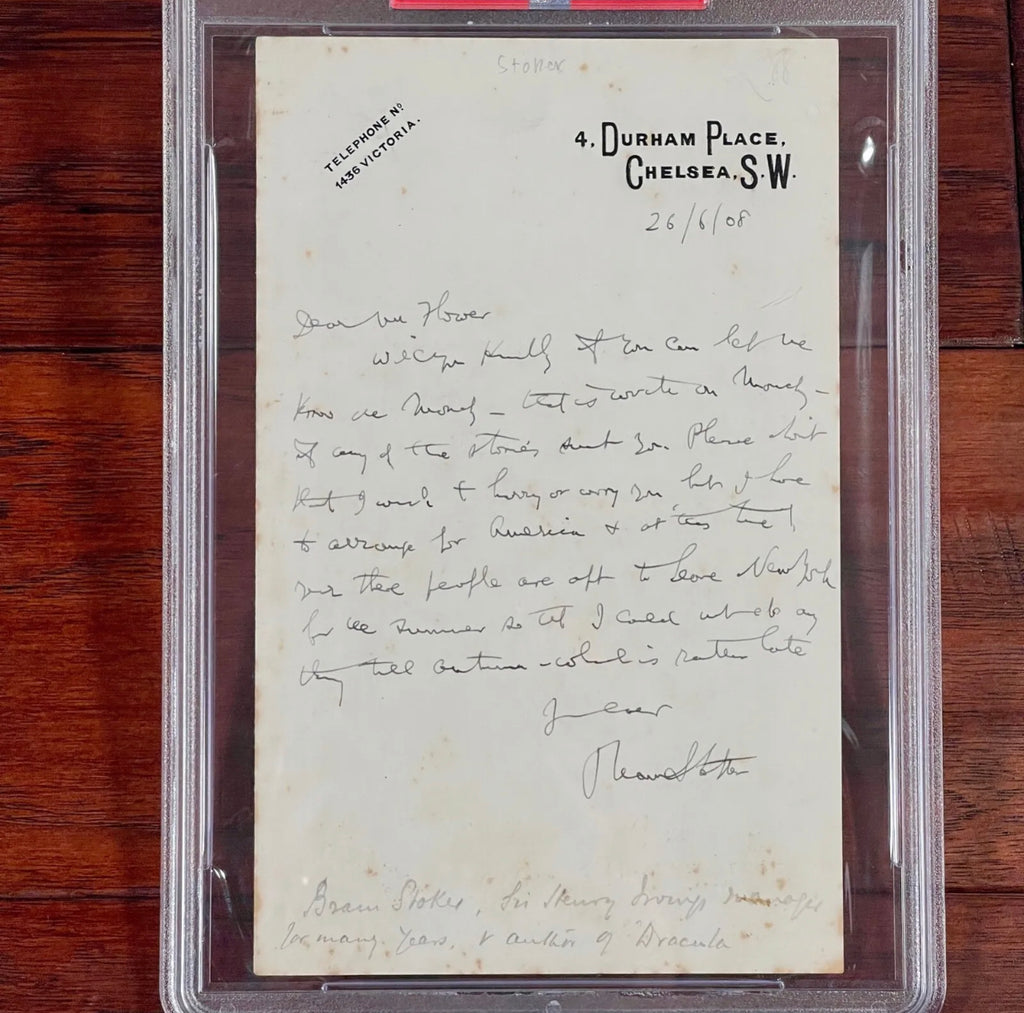 Stoker
TELEPHONE Nº
1436 VICTORIA.
4, DURHAM PLACE,
CHELSEA, S.W.
26/6/08
Dear Mr Flower
Will you kindly if you can let me
know on Monday – that is write on Monday –
if any of the stories suit you. Please don't
think I wish to hurry or worry you but I have
to arrange for America & at this time of
year these people are apt to leave New York
for the summer so that I could not do any
thing till autumn – which is rather late
Yours ever
Bram Stoker
Bram Stoker, Sir Henry Irving's manager
for many years, & author of Dracula